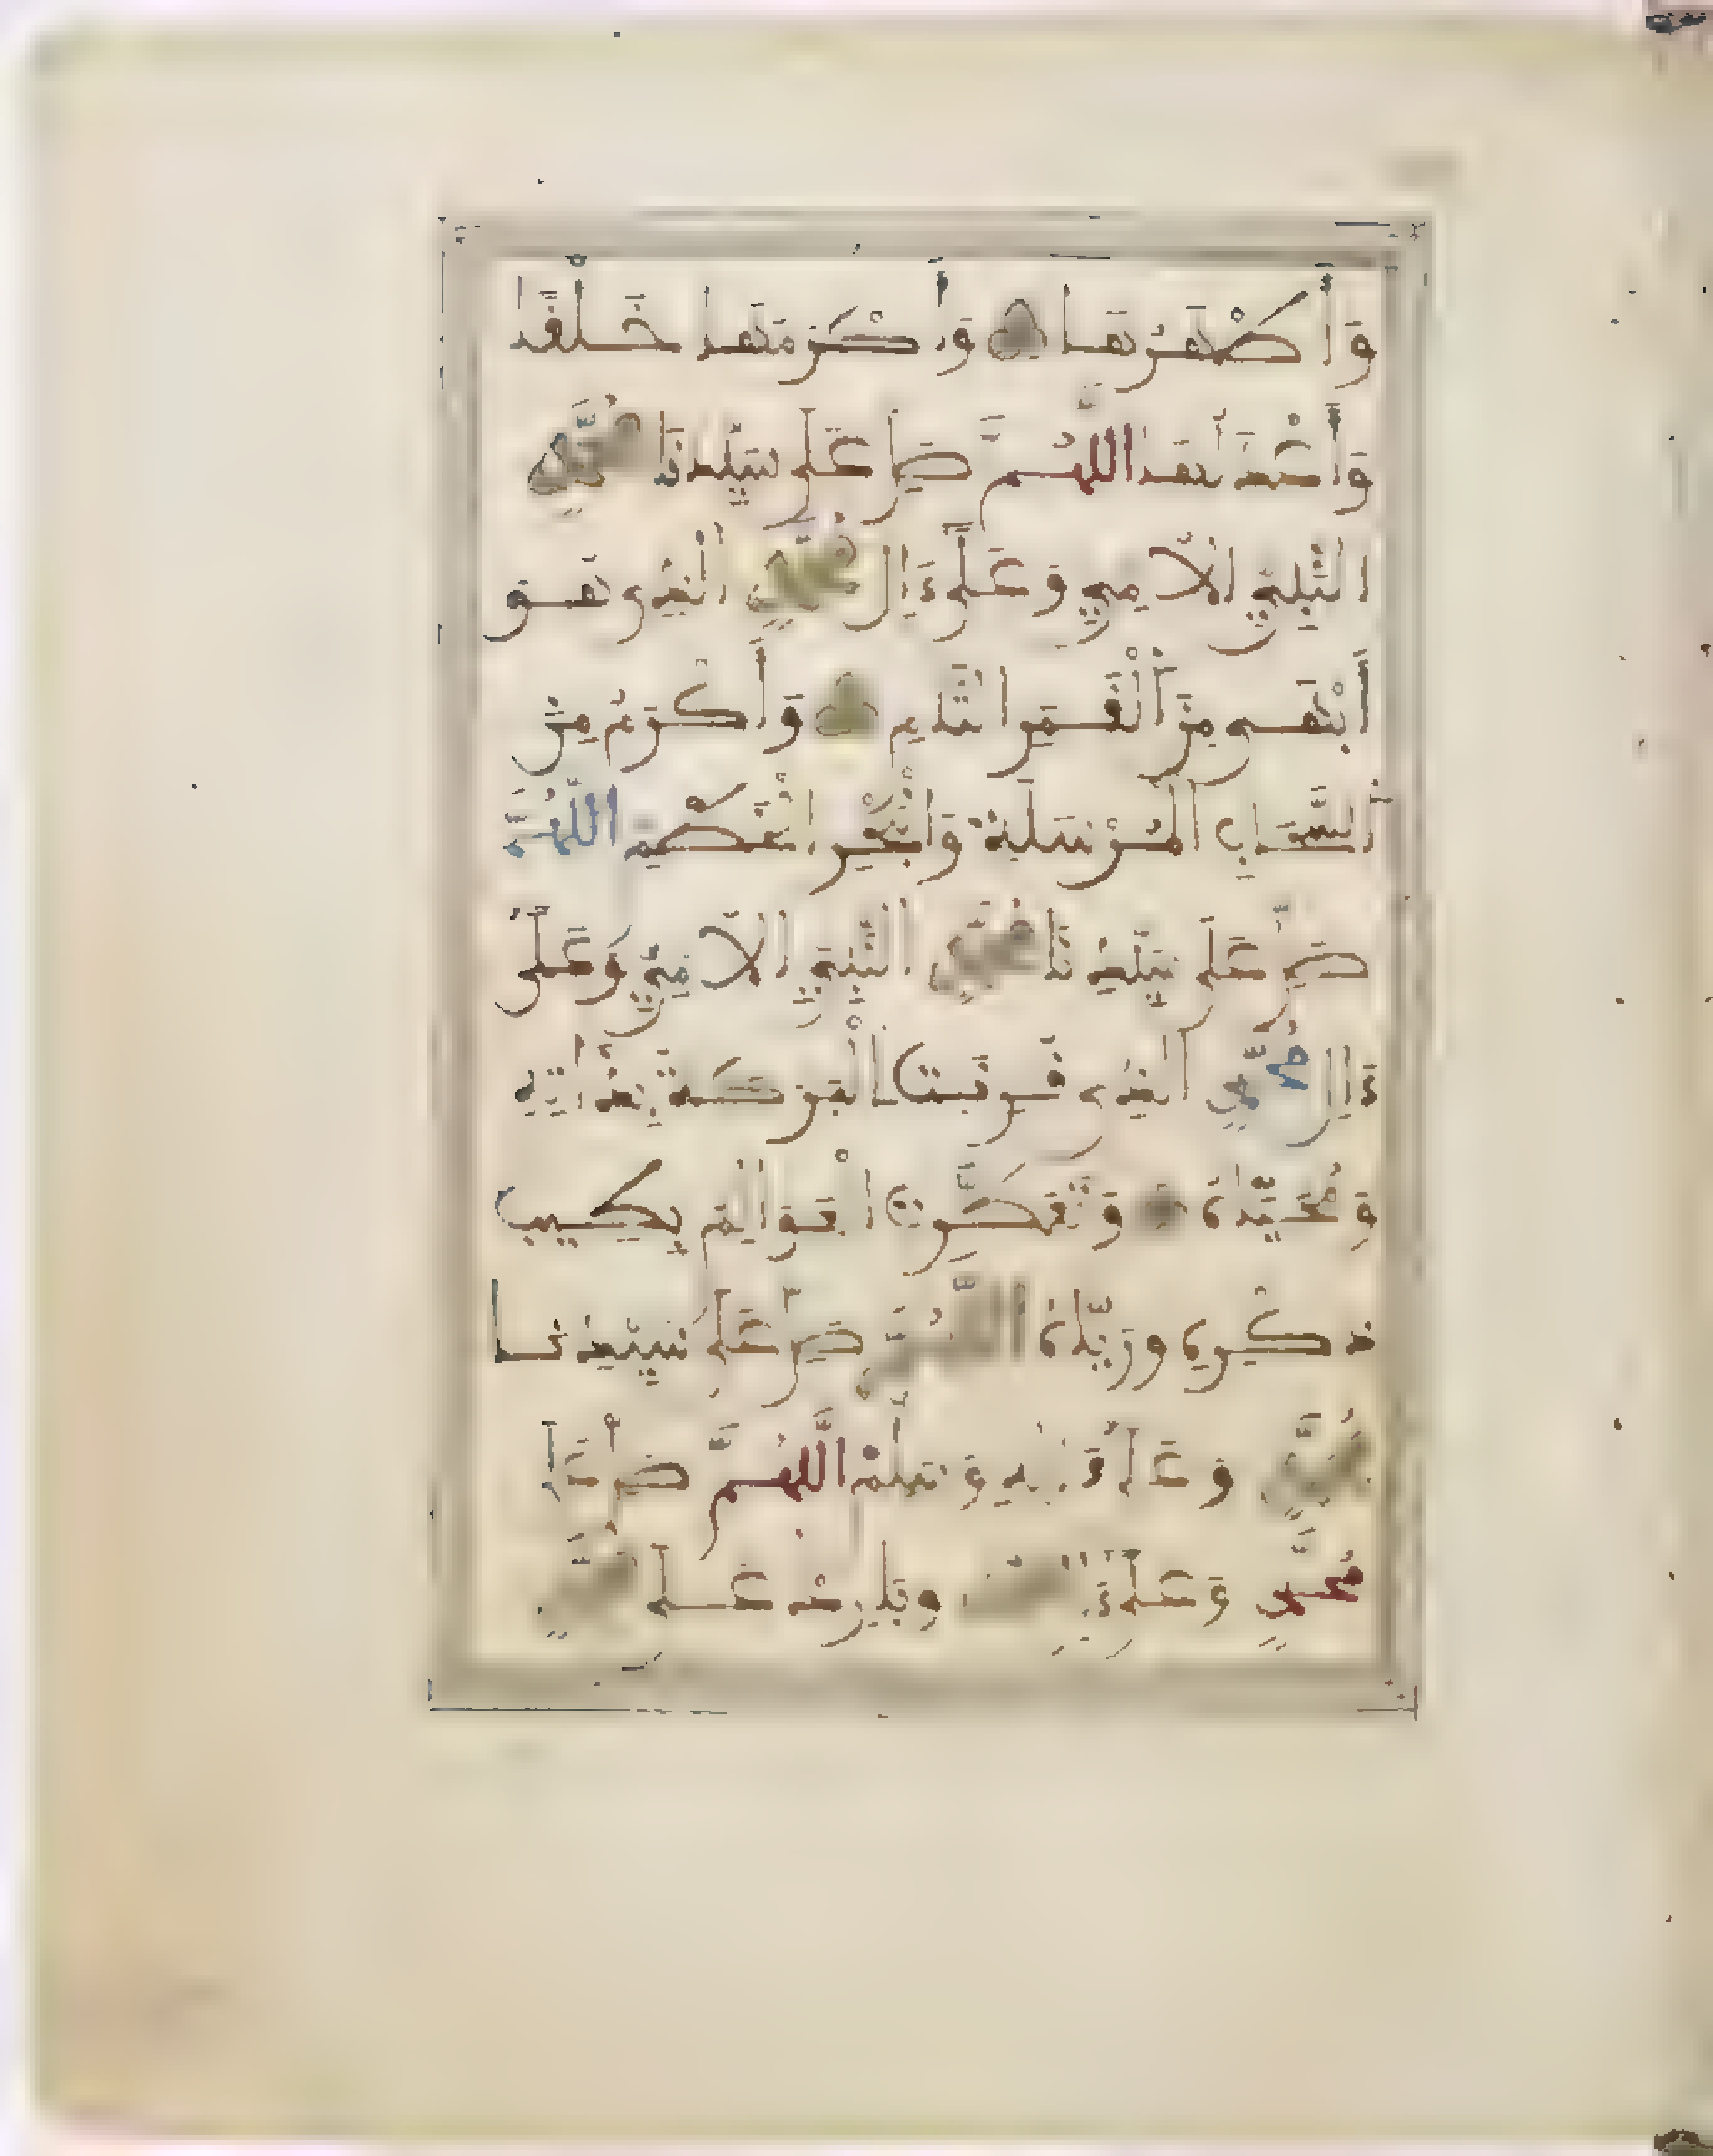 وَأَطْهَرِهَا وَأَكْرَمِهَا خَلْفًا
وَأَعْدَلِهَا اللَّهُمَّ صَلِّ عَلَى سَيِّدِنَا مُحَمَّدٍ
النَّبِيِّ الْأُمِّيِّ وَعَلَى ءَالِ مُحَمَّدٍ الَّذِي هُوَ
أَبْهَى مِنَ الْقَمَرِ التَّامِّ وَأَكْرَمُ مِنَ
السَّحَابِ الْمُرْسَلَةِ وَالْبَحْرِ الْخِطَمِّ اللَّهُمَّ
صَلِّ عَلَى سَيِّدِنَا مُحَمَّدٍ النَّبِيِّ الْأُمِّيِّ وَعَلَى
ءَالِ مُحَمَّدٍ الَّذِي قُرِنَتِ الْبَرَكَةُ بِذَاتِهِ
وَمُحَيَّاهُ وَتَعَطَّرَتِ الْعَوَالِمُ بِطِيبِ
ذِكْرِهِ وَرَيَّاهُ اللَّهُمَّ صَلِّ عَلَى سَيِّدِنَا
مُحَمَّدٍ وَعَلَى ءَالِهِ وَسَلِّمْ اللَّهُمَّ صَلِّ عَلَى
مُحَمَّدٍ وَعَلَى ءَالِ مُحَمَّدٍ وَبَارِكْ عَلَى مُحَمَّدٍ